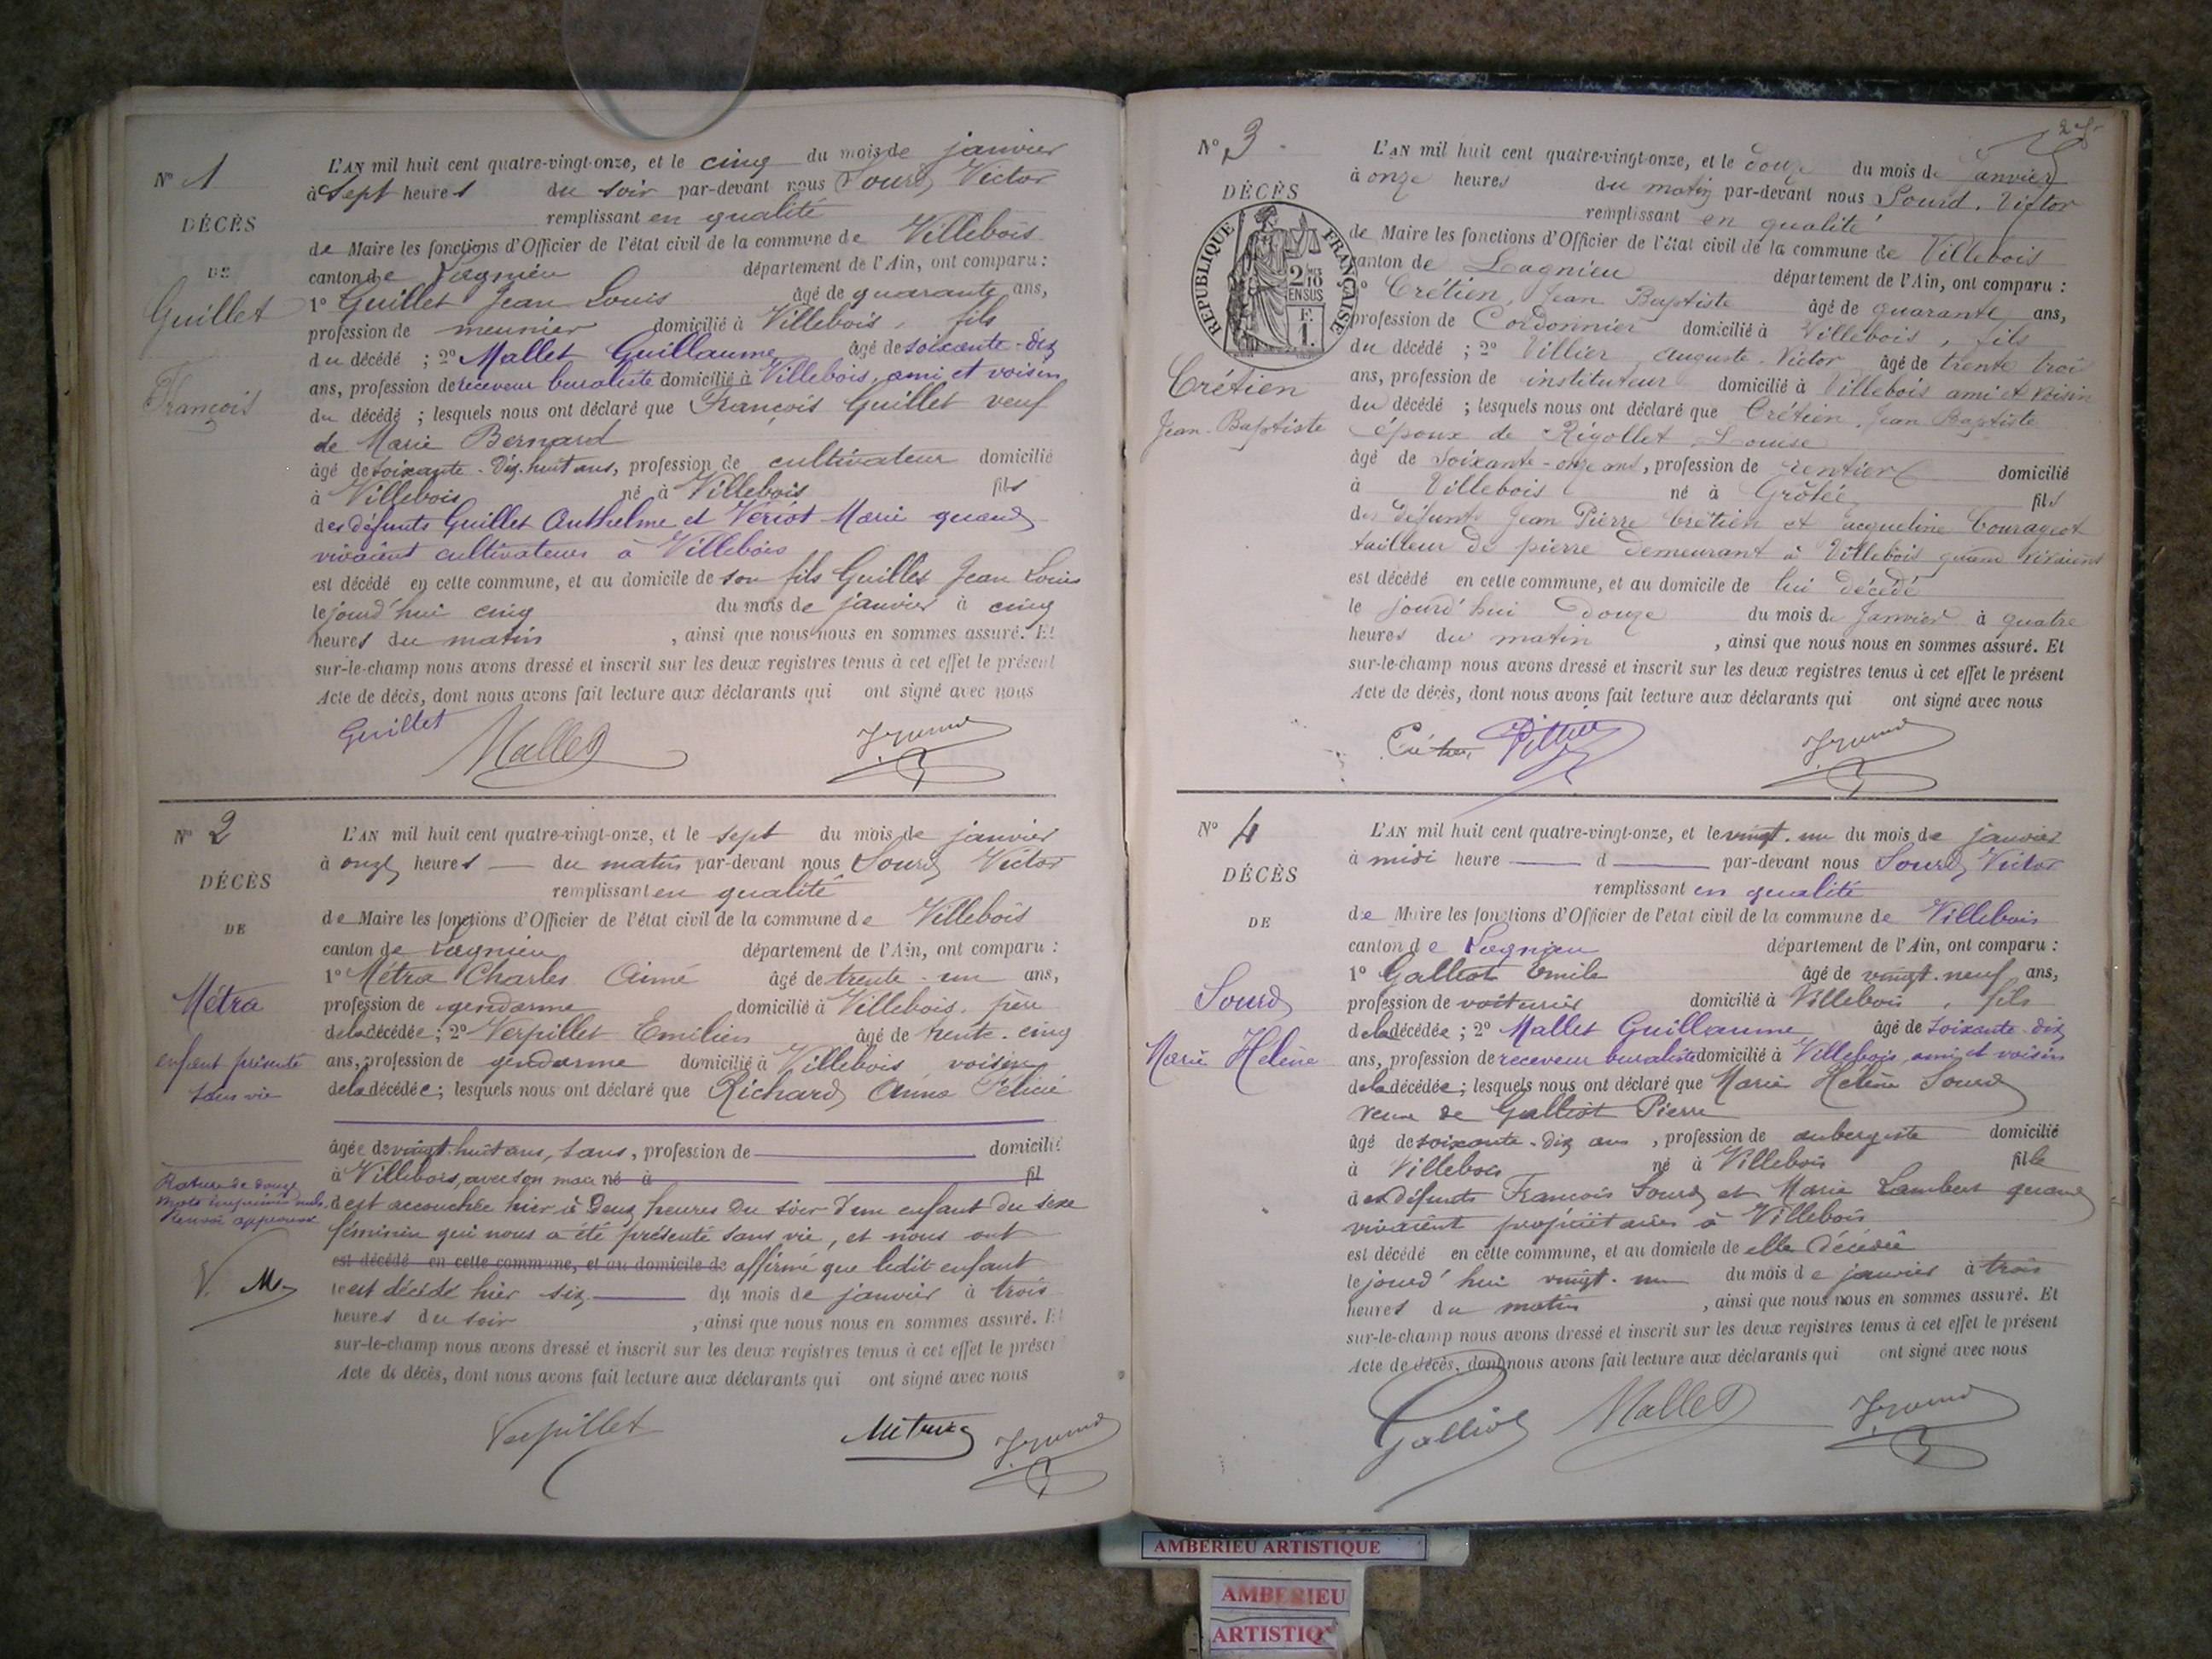 N° 1
DÉCÈS
DE
Guillet
François
L'AN mil huit cent quatre-vingt-onze, et le cinq du mois de janvier
à Sept heures du soir par-devant nous Sourd Victor
remplissant en qualité
de Maire les fonctions d'Officier de l'état civil de la commune de Villebois
canton de Lagnieu département de l'Ain, ont comparu :
1° Guillet Jean Louis âgé de quarante ans,
profession de meunier domicilié à Villebois, fils
du décédé ; 2° Mallet Guillaume âgé de soixante-dix
ans, profession de receveur buraliste domicilié à Villebois, ami et voisin
du décédé ; lesquels nous ont déclaré que François Guillet veuf
de Marie Bernard
âgé de soixante-dix-huit ans, profession de cultivateur domicilié
à Villebois né à Villebois fils
des défunts Guillet Anthelme et Veriot Marie quand
vivaient cultivateurs à Villebois
est décédé en cette commune, et au domicile de son fils Guillet Jean Louis
le jourd'hui cinq du mois de janvier à cinq
heures du matin, ainsi que nous nous en sommes assuré. Et
sur-le-champ nous avons dressé et inscrit sur les deux registres tenus à cet effet le présent
Acte de décès, dont nous avons fait lecture aux déclarants qui ont signé avec nous
Guillet Mallet
N° 2
DÉCÈS
DE
Métra
enfant présenté
sans vie
Rature de douze
mots imprimés nuls
renvoi approuvé
V. M
L'AN mil huit cent quatre-vingt-onze, et le sept du mois de janvier
à onze heures du matin par-devant nous Sourd Victor
remplissant en qualité
de Maire les fonctions d'Officier de l'état civil de la commune de Villebois
canton de Lagnieu département de l'Ain, ont comparu :
1° Métra Charles Aimé âgé de trente-un ans,
profession de gendarme domicilié à Villebois, père
de la décédée ; 2° Verpillet Emilien âgé de trente-cinq
ans, profession de gendarme domicilié à Villebois voisin
de la décédée ; lesquels nous ont déclaré que Richard Anna Félicie
âgée de vingt-huit ans, sans, profession de domicilié
à Villebois, avec son mari né à fil
d est accouchée hier à Deux heures du soir d'un enfant du sexe
féminin qui nous a été présenté sans vie, et nous ont
est décédé en cette commune, et au domicile de affirmé que ledit enfant
est décédé hier six du mois de janvier à trois
heures du soir, ainsi que nous nous en sommes assuré. Et
sur-le-champ nous avons dressé et inscrit sur les deux registres tenus à cet effet le présent
Acte de décès, dont nous avons fait lecture aux déclarants qui ont signé avec nous
Verpillet Métra
N° 3
DÉCÈS
RÉPUBLIQUE FRANÇAISE
2/10 EN SUS
F. 1.
Crétien
Jean-Baptiste
L'AN mil huit cent quatre-vingt-onze, et le douze du mois de Janvier
à onze heures du matin par-devant nous Sourd, Victor
remplissant en qualité
de Maire les fonctions d'Officier de l'état civil de la commune de Villebois
canton de Lagnieu département de l'Ain, ont comparu :
1° Crétien, Jean Baptiste âgé de quarante ans,
profession de Cordonnier domicilié à Villebois, fils
du décédé ; 2° Villier Auguste Victor âgé de trente trois
ans, profession de instituteur domicilié à Villebois ami et voisin
du décédé ; lesquels nous ont déclaré que Crétien, Jean Baptiste
époux de Rigollet Louise
âgé de Soixante-onze ans, profession de rentier domicilié
à Villebois né à Grôlée fils
des défunts Jean Pierre Crétien et Jacqueline Courageot
tailleur de pierre demeurant à Villebois quand vivaient
est décédé en cette commune, et au domicile de lui décédé
le jourd'hui Douze du mois de Janvier à quatre
heures du matin, ainsi que nous nous en sommes assuré. Et
sur-le-champ nous avons dressé et inscrit sur les deux registres tenus à cet effet le présent
Acte de décès, dont nous avons fait lecture aux déclarants qui ont signé avec nous
N° 4
DÉCÈS
DE
Sourd
Marie Hélène
L'AN mil huit cent quatre-vingt-onze, et le vingt-un du mois de janvier
à midi heure d par-devant nous Sourd Victor
remplissant en qualité
de Maire les fonctions d'Officier de l'état civil de la commune de Villebois
canton de Lagnieu département de l'Ain, ont comparu :
1° Galliot Emile âgé de vingt-neuf ans,
profession de voiturier domicilié à Villebois, fils
de la décédée ; 2° Mallet Guillaume âgé de soixante-dix
ans, profession de receveur buraliste domicilié à Villebois, ami et voisin
de la décédée ; lesquels nous ont déclaré que Marie Hélène Sourd
veuve de Galliot Pierre
âgé de soixante-dix ans, profession de aubergiste domicilié
à Villebois né à Villebois fille
des défunts François Sourd et Marie Lambert quand
vivaient propriétaires à Villebois
est décédé en cette commune, et au domicile de elle décédée
le jourd'hui vingt-un du mois de janvier à trois
heures du matin, ainsi que nous nous en sommes assuré. Et
sur-le-champ nous avons dressé et inscrit sur les deux registres tenus à cet effet le présent
Acte de décès, dont nous avons fait lecture aux déclarants qui ont signé avec nous
Galliot Mallet
AMBERIEU ARTISTIQUE
AMBERIEU
ARTISTIQ